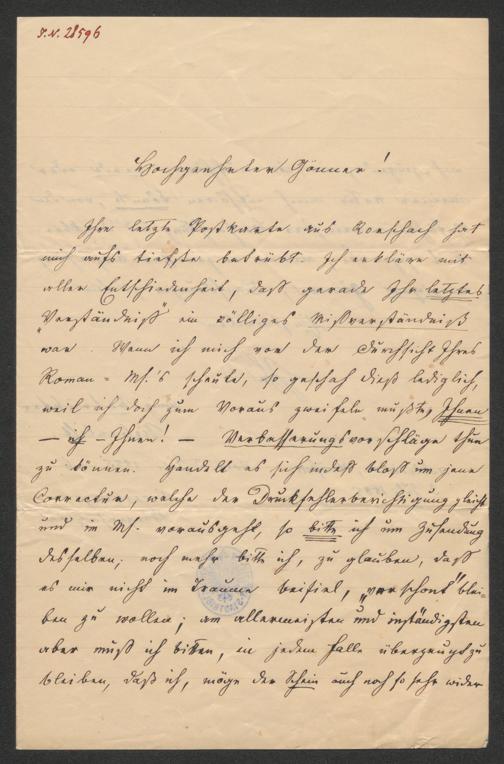 I.N. 28596
Hochgeehrter Gönner!
Ihre letzte Postkarte aus Rorschach hat
mich aufs tiefste betrübt. Ich erkläre mit
aller Entschiedenheit, daß gerade Ihr letztes
„Verständniß" ein völliges Mißverständniß
war. Wenn ich mich vor der Durchsicht Ihres
Roman-Ms.'s scheute, so geschah dieß lediglich,
weil ich doch zum Voraus zweifeln mußte, Ihnen
— ich — Ihnen! — Verbesserungsvorschläge thun
zu können. Handelt es sich indeß bloß um jene
Correctur, welche der Druckfehlerberichtigung gleicht
und im Ms. vorausgeht, so bitte ich um Zusendung
desselben; noch mehr bitte ich, zu glauben, daß
es mir nicht im Traume beifiel, „verschont" blei-
ben zu wollen; am allermeisten und inständigsten
aber muß ich bitten, in jedem Falle überzeugt zu
bleiben, daß ich, möge der Schein auch noch so sehr wider